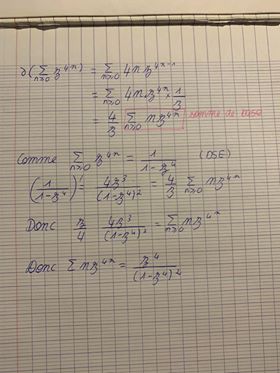 ∂(∑_{n≥0} z^{4n}) = ∑_{n≥0} 4n z^{4n-1}
= ∑_{n≥0} 4n z^{4n} × 1/z
= 4/z ∑_{n≥0} n z^{4n} somme de base
Comme ∑_{n≥0} z^{4n} = 1/(1-z^4) (DSE)
(1/(1-z^4))' = 4z^3/(1-z^4)^2 = 4/z ∑_{n≥0} n z^{4n}
Donc z/4 4z^3/(1-z^4)^2 = ∑_{n≥0} n z^{4n}
Donc ∑ n z^{4n} = z^4/(1-z^4)^2